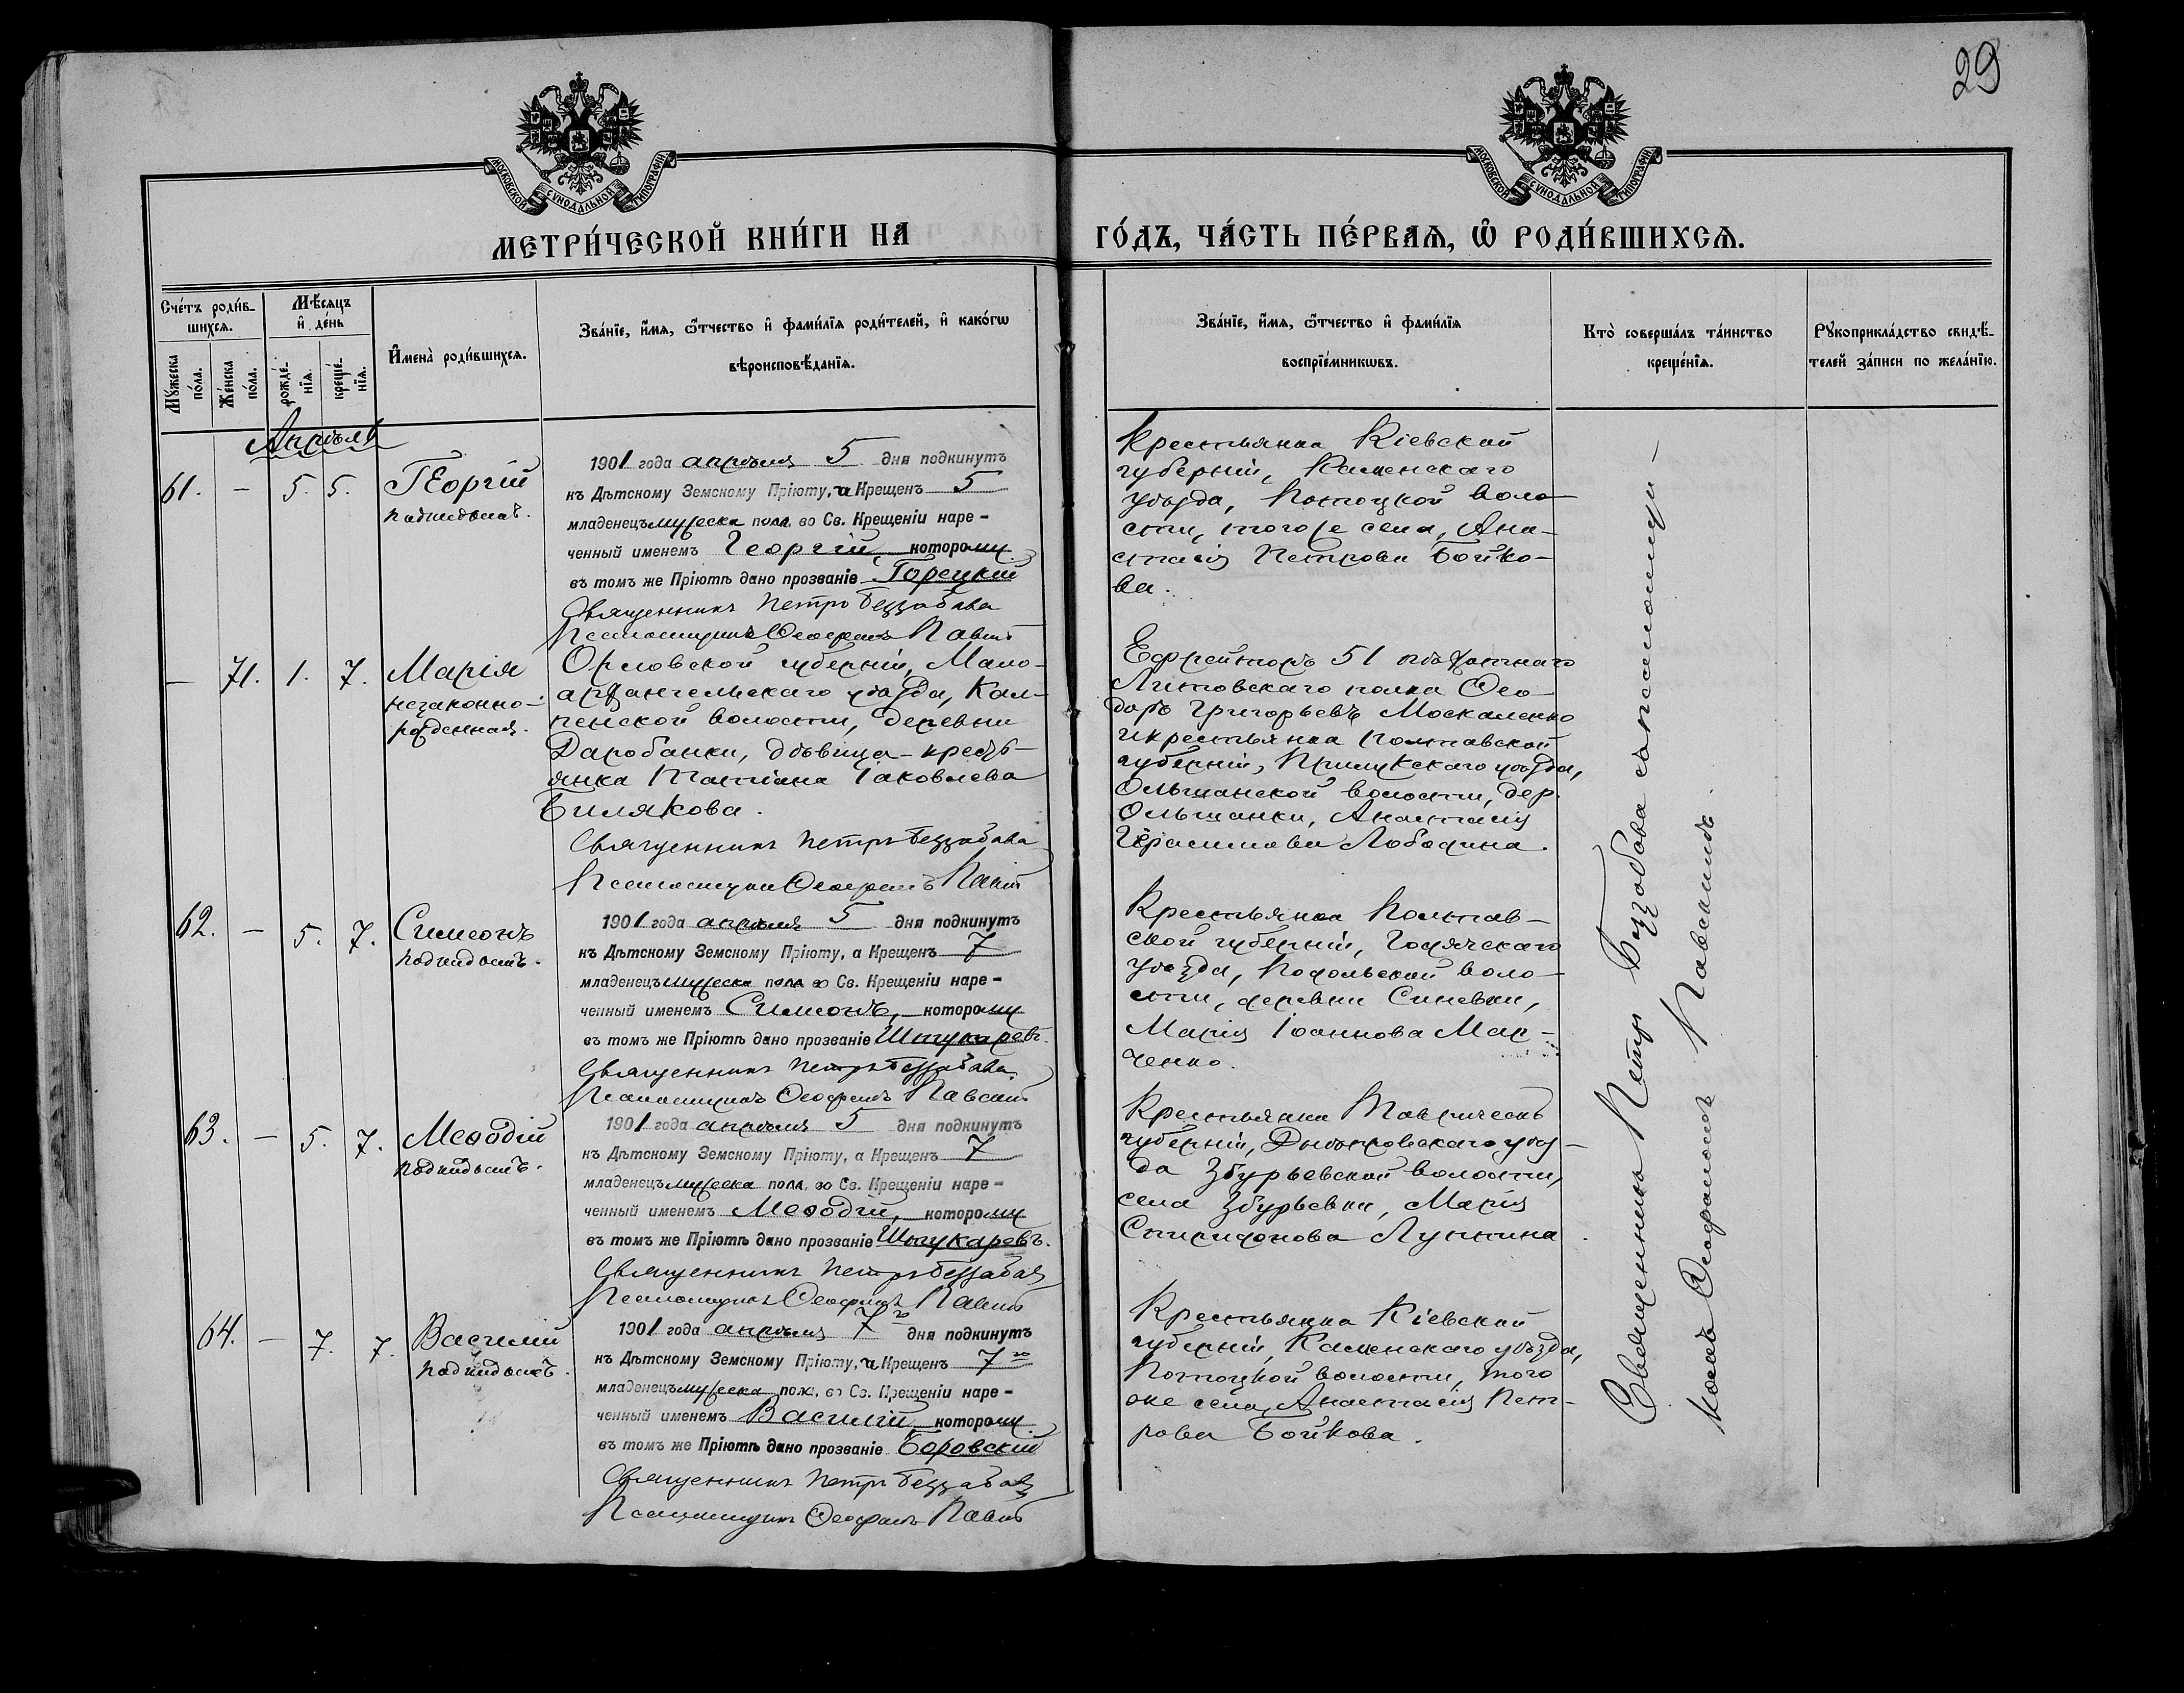 29
МОСКОВСКОЙ СѴНОДАЛЬНОЙ ТИПОГРАФІИ
МОСКОВСКОЙ СѴНОДАЛЬНОЙ ТИПОГРАФІИ
МЕТРИ́ЧЕСКОЙ КНИ́ГИ НА
ГО́ДЪ, ЧА́СТЬ ПЕ́РВАѦ, Ѽ РОДИ́ВШИХСѦ.
Сче́тъ роди́в-
шихсѧ.
Мꙋ́жеска
по́ла.
Же́нска
по́ла.
Мѣ́сѧцъ
и҆ де́нь
рожде́-
нїѧ.
креще́-
нїѧ.
И҆мена̀ роди́вшихсѧ.
Зва́нїе, и҆́мѧ, ѻ҆́тчество и҆ фами́лїѧ роди́телей, и҆ како́гѡ
вѣроисповѣ́данїѧ.
Зва́нїе, и҆́мѧ, ѻ҆́тчество и҆ фами́лїѧ
воспрїе́мникѡвъ.
Кто̀ соверша́лъ та́инство
креще́нїѧ.
Рꙋкоприкла́дство свидѣ́-
телей за́писи по жела́нїю.
Апрѣль
61. – 5. 5.
Георгій
подкидышъ.
1901 года апрѣля 5 дня подкинутъ
къ Дѣтскому Земскому Пріюту, а Крещенъ 5
младенецъ мужеска пола, во Св. Крещеніи наре-
ченный именемъ Георгій, которому
въ томъ же Пріютѣ дано прозваніе Горецкій
Священникъ Петръ Беззабава
Псаломщикъ Ѳеофанъ
Крестьянка Кіевской
губерніи, Каменскаго
уѣзда, Потоцкой воло-
сти, того же села, Ана-
стасія Петрова Бойко-
ва.
– 71. 1. 7.
Марія
незаконно-
рожденная.
Орловской губерніи, Мало-
архангельскаго уѣзда,
пенской волости, деревни
Даробанки, дѣвица-кресть-
янка Татіана Іаковлева
Билякова.
Священникъ Петръ Беззабава
Псаломщикъ Ѳеофанъ
Ефрейторъ 51 пѣхотнаго
Литовскаго полка Ѳео-
доръ Григорьевъ Москаленко
и крестьянка Полтавской
губерніи, Прилукскаго уѣзда,
Ольшанской волости, дер.
Ольшанки, Анастасія
Герасимова Лободина.
62. – 5. 7.
Симеонъ
подкидышъ.
1901 года апрѣля 5 дня подкинутъ
къ Дѣтскому Земскому Пріюту, а Крещенъ 7
младенецъ мужеска пола во Св. Крещеніи наре-
ченный именемъ Симеонъ, которому
въ томъ же Пріютѣ дано прозваніе Штукаревъ.
Священникъ Петръ Беззабава
Псаломщикъ Ѳеофанъ
Крестьянка Полтав-
ской губерніи, Гадячскаго
уѣзда, Подольской воло-
сти, деревни Синевки,
Марія Іоаннова Мар-
ченко.
63. – 5. 7.
Меѳодій
подкидышъ.
1901 года апрѣля 5 дня подкинутъ
къ Дѣтскому Земскому Пріюту, а Крещенъ 7
младенецъ мужеска пола, во Св. Крещеніи наре-
ченный именемъ Меѳодій, которому
въ томъ же Пріютѣ дано прозваніе Штукаревъ.
Священникъ Петръ Беззабава
Псаломщикъ Ѳеофанъ
Крестьянка Таврическ
губерніи, Днѣпровскаго уѣз-
да Збурьевской волости,
села Збурьевки, Марія
Спиридонова Лупкина.
64. – 7. 7.
Василій
подкидышъ.
1901 года апрѣля 7го дня подкинутъ
къ Дѣтскому Земскому Пріюту, а Крещенъ 7го
младенецъ мужеска пола, во Св. Крещеніи наре-
ченный именемъ Василій, которому
въ томъ же Пріютѣ дано прозваніе Боровскій
Священникъ Петръ Беззабава
Псаломщикъ Ѳеофанъ
Крестьянка Кіевской
губерніи, Каменскаго уѣзда,
Потоцкой волости, того
же села, Анастасія Пет-
рова Бойкова.
Священникъ Петръ Беззабава съ псаломщи-
комъ Ѳеофаномъ